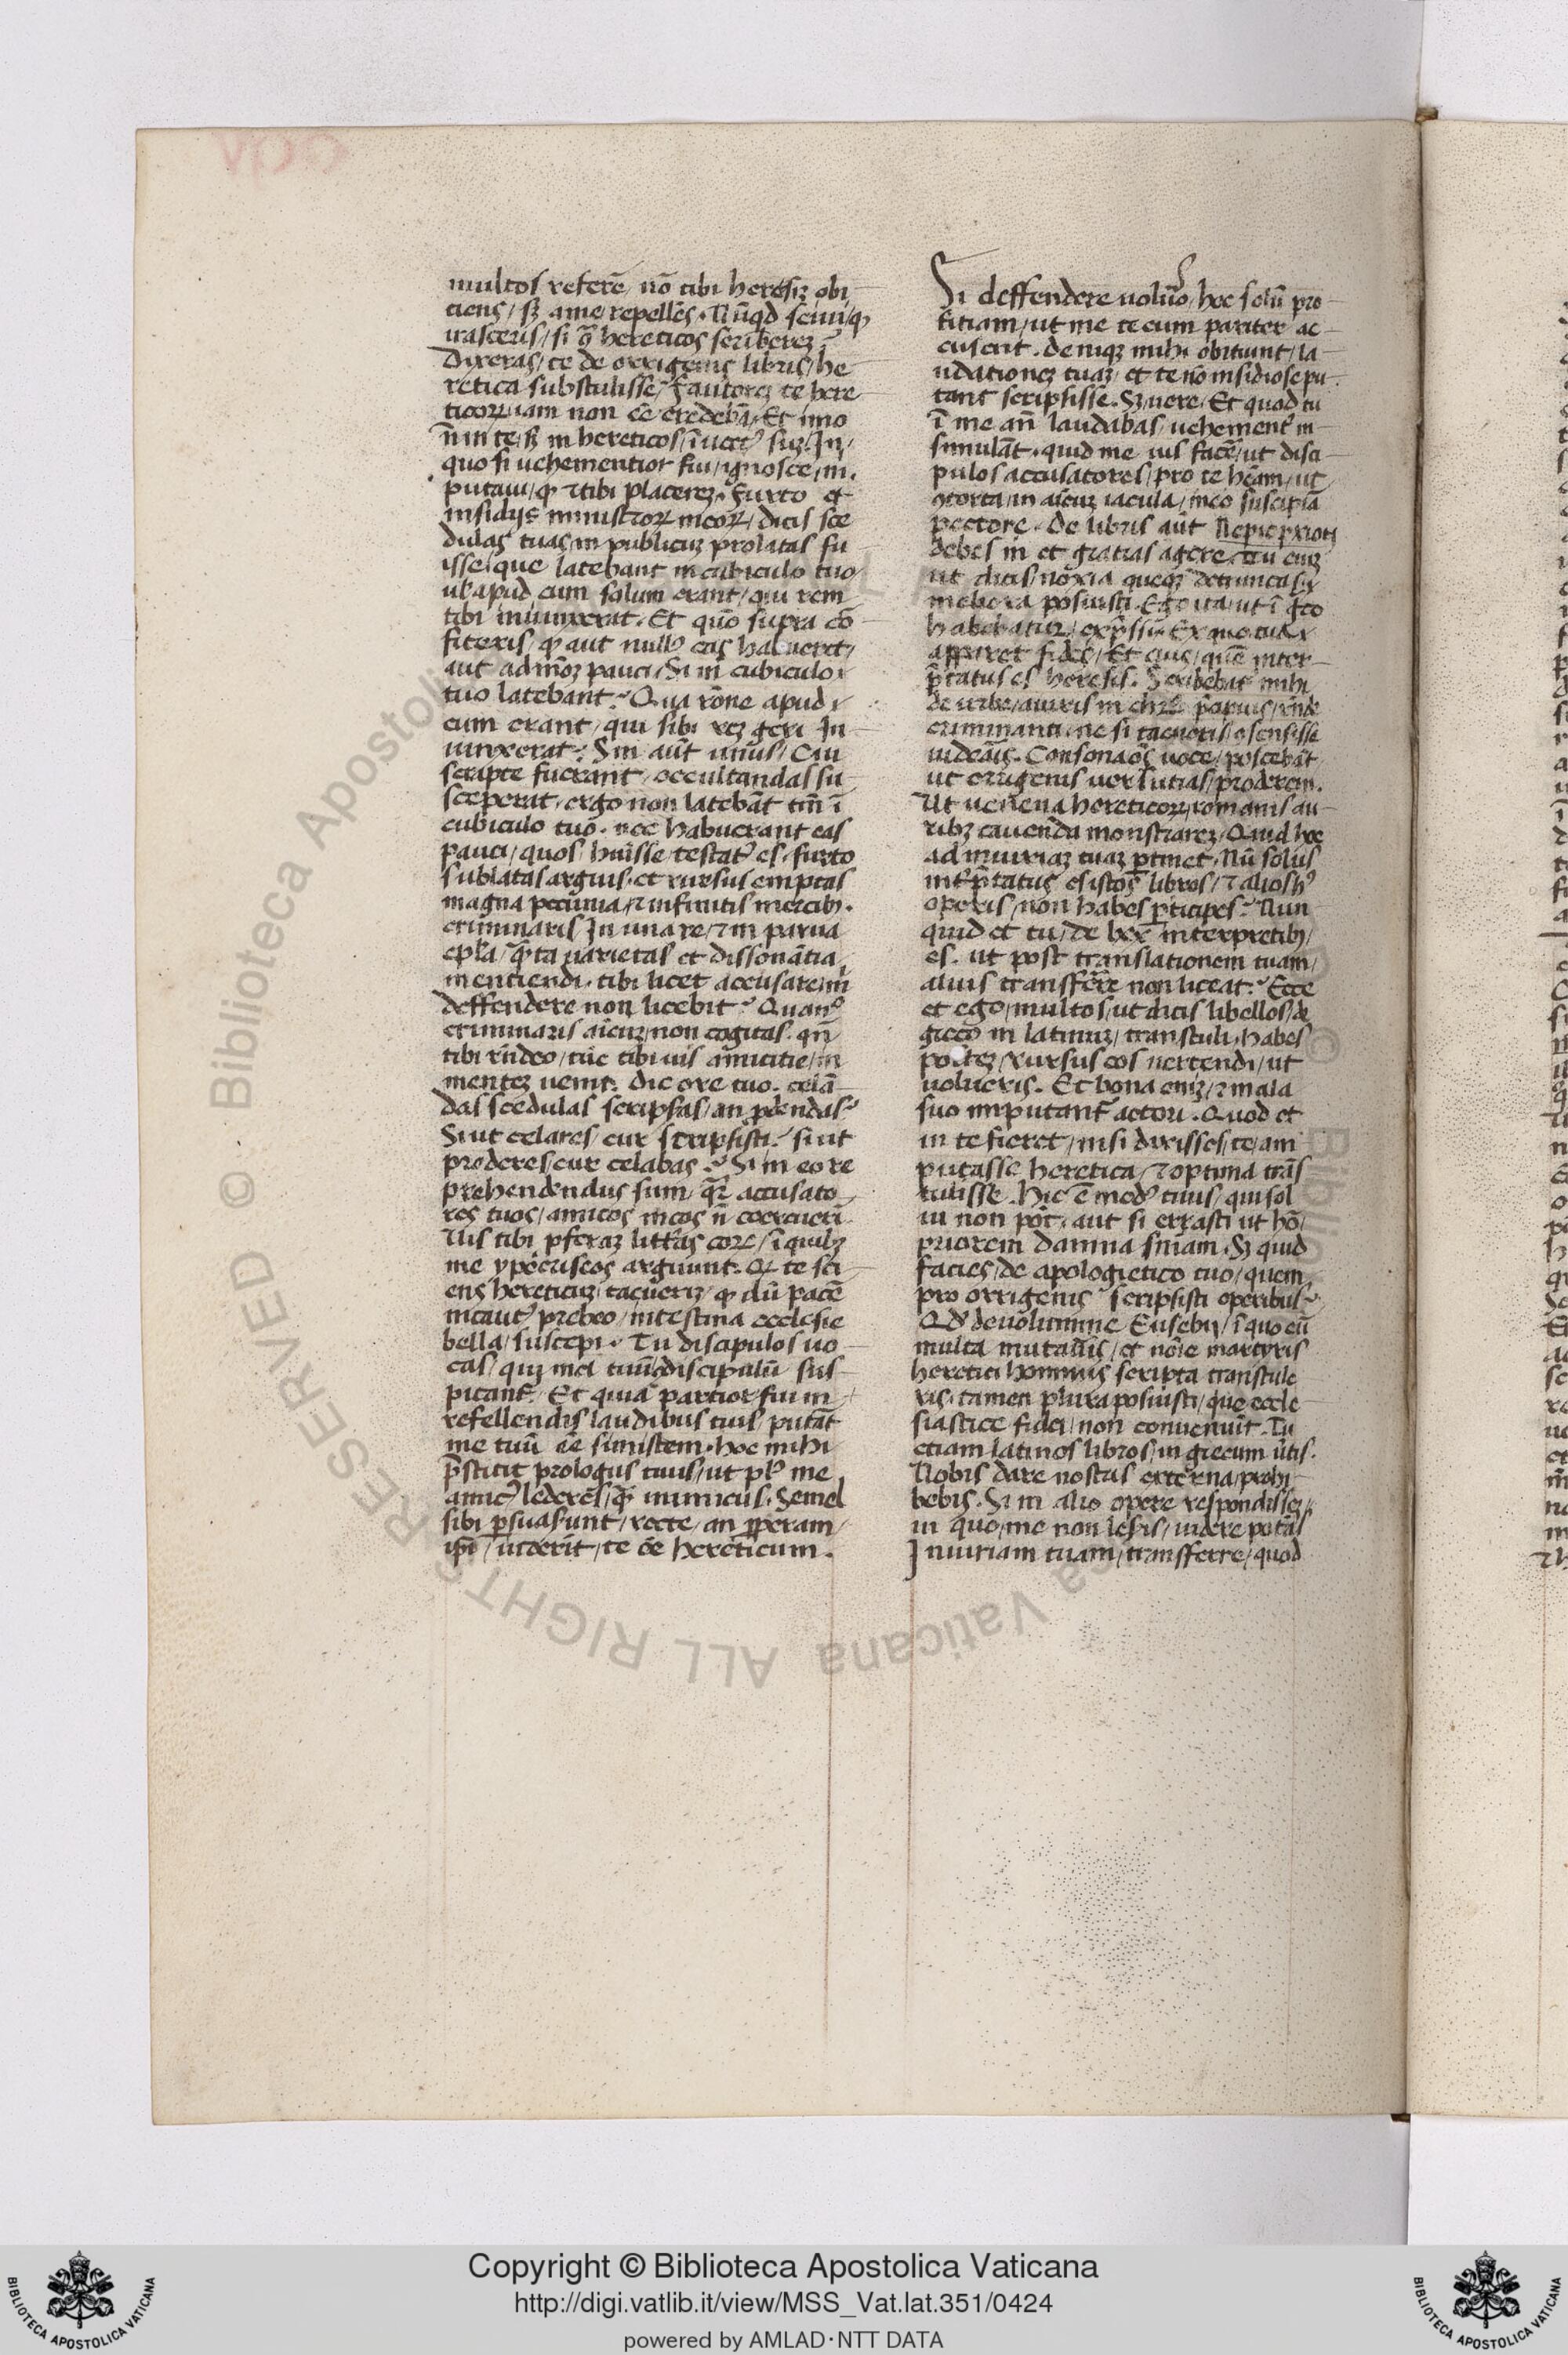 multos referē/ nō tibi heresiȝ obi
ciens/ sȝ ame/ repellēs. Nūqd sciui/ ꝙ
irasceris/ si ꝯͣ hereticos scriberez?
Dixeras/ te de orrigenis libris/ he
retica substulisse/ fautorez te here
ticoꝝ/ iam non eē credebā/ Et īmo
n̄ in te/ sȝ in hereticos/ īuectꝰ suȝ. In/
quo si uehementior fui/ ignosce/ m̄.
putaui/ ꝙ ⁊tibi placerez. Furto et
insidijs ministroꝝ meoꝝ/ dicis sce
dulas tuas/ in publicuȝ prolatas fu
isse/ que latebant in cubiculo tuo/
ul apud eum solum erant/ qui rem
tibi iniunxerat. Et quō supra cō
fiteris/ ꝙ aut nullꝰ eas habueret/
aut admōȝ pauci/ Si in cubiculo
tuo latebant? Qua rōne apud
eum erant/ qui sibi reȝ geri In
iunxerat? Sin aūt unus/ Cui
scripte fuerant/ occultandas su
sceperat/ ergo non latebāt tm̄ ī
cubiculo tuo. nec habuerant eas
pauci/ quos huisse/ testatꝰ es. furto
sublatas arguis. et rursus emptas
magna pecunia/ ⁊ infinitis mercibȝ.
criminaris In una re/ ⁊ in parua
epl̄a/ q̄ta uarietas et dissonātia/
mentiendi. tibi licet accusare/ m̄
deffendere non licebit? Quanͦ
criminaris aīcuȝ/ non cogitas. qn̄
tibi rn̄deo/ tūc tibi ius amicitie/ in
menteȝ uenit. dic ore tuo. celā
das scedulas scripsas/ an ꝓdendas?
Si ut celares/ cur scripsisti? si ut
proderes/ cur celabas? Si in eo re
prehendendus sum/ qꝛ accusato
res tuos/ amicos meos n̄ coercueri.
Vis tibi ꝓferaȝ litt̄as eoꝝ/ ī quibȝ
me ypocriseos arguunt. Qꝛ te sci
ens hereticuȝ/ tacueriȝ/ ꝙ dū pacē
incautꝰ prebeo/ intestina ecclesie
bella/ suscepi. Tu discipulos uo
cas/ qui me/ tuūꝯdiscipulū sus
picant̄. Et quia partior fui in
refellendis laudibus tuis/ putāt
me tuū eē simistem. hoc mihi
p̄stitit prologus tuus/ ut plꝰ me
amicꝰ lederes/ q̄ inimicus. Semel
sibi ꝑsuasunt/ recte/ an ꝑperam/
ip̄i/ uiderit/ te eē hereticum.
Si deffendere uoluero/ hoc solū pro
ficiam/ ut me tecum pariter ac
cusent. deniqȝ mihi obiciunt/ la
udationeȝ tuaȝ/ et te nō insidiose pu
tant scripsisse. Sȝ uere. Et quod tu
ī me an̄ laudabas/ uehementꝰ in
simulāt. quid me uis facē/ ut disci
pulos accusatores/ pro te hēam/ ut
ꝯtorta/ in aīcuȝ iacula/ meo suscipiā
pectore. De libris aūt
debes m̄ et gratias agere. Tu eniȝ
ut dicis/ noxia queqȝ detruncas
meliora posuisti. Ego ita/ ut ī g̊co
habebatur/ exp̄ssi. Ex quo tua
apparet fides/ Et eius/ quē inter
p̄tatus es heresis. Scribebat mihi
de urbe/ auris in chr̄o
criminanti. ne si tacueris/
uideāis. Consona oīs uoce/ poscebāt
ut orrigenis uersutias/ proderem.
Ut uenena hereticoꝝ/ romanis au
ribȝ cauenda monstrareȝ. Quid hoc
ad iniuriaȝ tuaȝ ꝑtinet. Nū solus
intꝑ̄tatus es istos libros/ ⁊ alios hꝰ
operis/ non habes ꝑticipes? Nun
quid et tu/ de interpretibȝ/
es. ut post translationem tuam/
aliis transferre non liceat? Ecce
et ego/ multos/ ut dicis libellos/ de
greco in latinuȝ/ transtuli. habes
rursus eos uertendi/ ut
uolueris. Et bona eniȝ/ ⁊ mala
suo imputant̄ actori. Quod et
in te fieret/ nisi dixisses/ te/ am
putasse heretica/ ⁊ optima trās
tulisse. hic ē modꝰ tuus/ qui sol
ui non pōt. aut si errasti ut hō/
priorem damna sn̄iam. Sȝ quid
facies/ de apologietico tuo/ quem
pro orrigenis scripsisti operibus?
Qd de uolumine Eusebij/ ī quo cū
multa mutaueris/ et nōīe martyris
heretici hominis scripta transtule
ris. tamen plura posuisti/ que eccle
siastice fidei/ non conueniūt. Tu
etiam latinos libros/ in grecum ūtis.
Nobis dare nostris externa/ prohi
bebis. Si in alio opere respondisseȝ/
in quo/ me non lesis/ uidere potas
Iniuriam tuam/ transferre/ quod
Copyright © Biblioteca Apostolica Vaticana
http://digi.vatlib.it/view/MSS_Vat.lat.351/0424
powered by AMLAD·NTT DATA